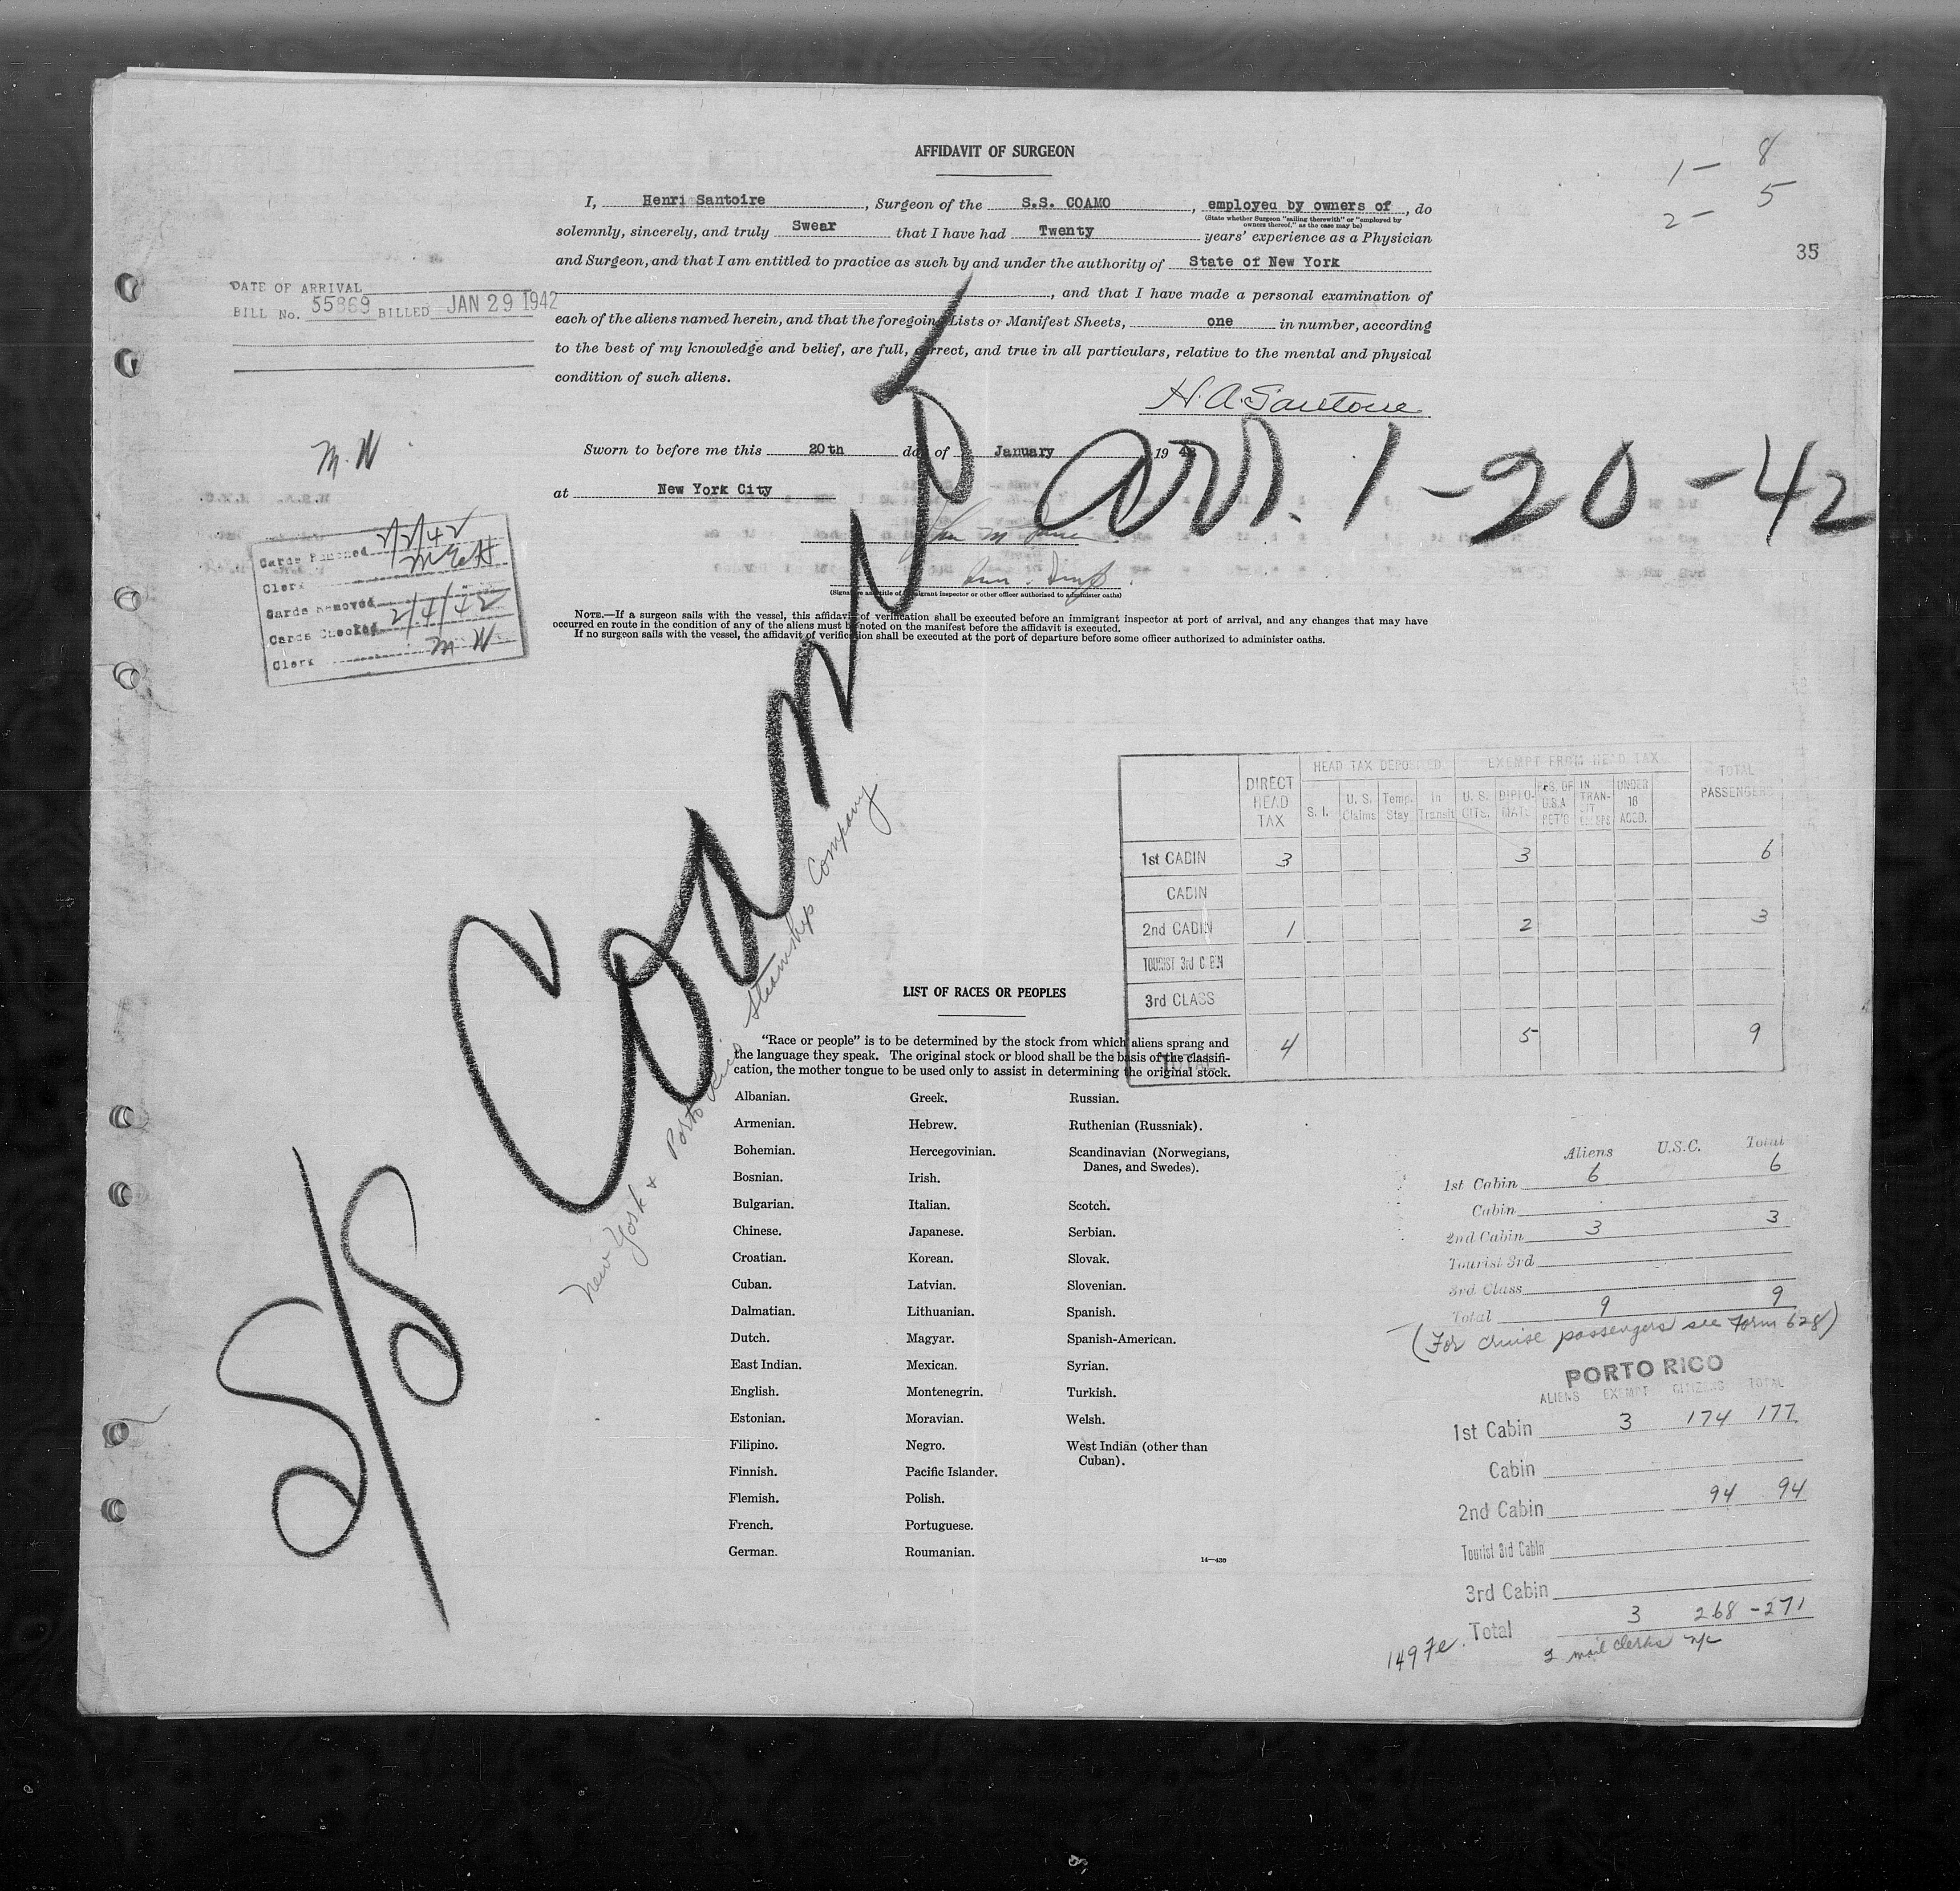 AFFIDAVIT OF SURGEON
1- 8
2- 5
35
I, Henri Santoire, Surgeon of the S.S. COAMO, employed by owners of, do
(State whether Surgeon "sailing therewith" or "employed by
owners thereof," as the case may be)
solemnly, sincerely, and truly Swear that I have had Twenty years' experience as a Physician
and Surgeon, and that I am entitled to practice as such by and under the authority of State of New York
, and that I have made a personal examination of
each of the aliens named herein, and that the foregoing Lists or Manifest Sheets, one in number, according
to the best of my knowledge and belief, are full, correct, and true in all particulars, relative to the mental and physical
condition of such aliens.
DATE OF ARRIVAL
BILL No. 55869 BILLED JAN 29 1942
H. A. Santoire
M. W
Sworn to before me this 20th day of January 1942
at New York City
arr. 1-20-42
(Signature and title of immigrant inspector or other officer authorized to administer oaths)
Cards Punched 2/2/42
Clerk
Cards Removed
Cards Checked 2/4/42
Clerk M W
NOTE.—If a surgeon sails with the vessel, this affidavit of verification shall be executed before an immigrant inspector at port of arrival, and any changes that may have
occurred en route in the condition of any of the aliens must be noted on the manifest before the affidavit is executed.
If no surgeon sails with the vessel, the affidavit of verification shall be executed at the port of departure before some officer authorized to administer oaths.
S/S Coamo
New York & Porto Rico Steamship Company
DIRECT HEAD TAX
HEAD TAX DEPOSITED
EXEMPT FROM HEAD TAX
TOTAL PASSENGERS
S. I. U. S. Claims Temp. Stay In Transit U. S. CITS. DIPLO-MATS RES. OF U.S.A. RET'G IN TRAN-SIT UNDER 16 ACCD.
1st CABIN 3 3 6
CABIN
2nd CABIN 1 2 3
TOURIST 3rd CABIN
3rd CLASS
TOTAL 4 5 9
LIST OF RACES OR PEOPLES
"Race or people" is to be determined by the stock from which aliens sprang and
the language they speak. The original stock or blood shall be the basis of the classifi-
cation, the mother tongue to be used only to assist in determining the original stock.
Albanian. Greek. Russian.
Armenian. Hebrew. Ruthenian (Russniak).
Bohemian. Hercegovinian. Scandinavian (Norwegians,
Danes, and Swedes).
Bosnian. Irish.
Bulgarian. Italian. Scotch.
Chinese. Japanese. Serbian.
Croatian. Korean. Slovak.
Cuban. Latvian. Slovenian.
Dalmatian. Lithuanian. Spanish.
Dutch. Magyar. Spanish-American.
East Indian. Mexican. Syrian.
English. Montenegrin. Turkish.
Estonian. Moravian. Welsh.
Filipino. Negro. West Indian (other than
Cuban).
Finnish. Pacific Islander.
Flemish. Polish.
French. Portuguese.
German. Roumanian.
14—430
Aliens U.S.C. Total
1st Cabin 6 6
Cabin
2nd Cabin 3 3
Tourist 3rd
3rd Class
Total 9 9
(For cruise passengers see Form 628)
PORTO RICO
ALIENS EXEMPT CITIZENS TOTAL
1st Cabin 3 174 177
Cabin
2nd Cabin 94 94
Tourist 3rd Cabin
3rd Cabin
Total 3 268-271
2 mail clerks n/c